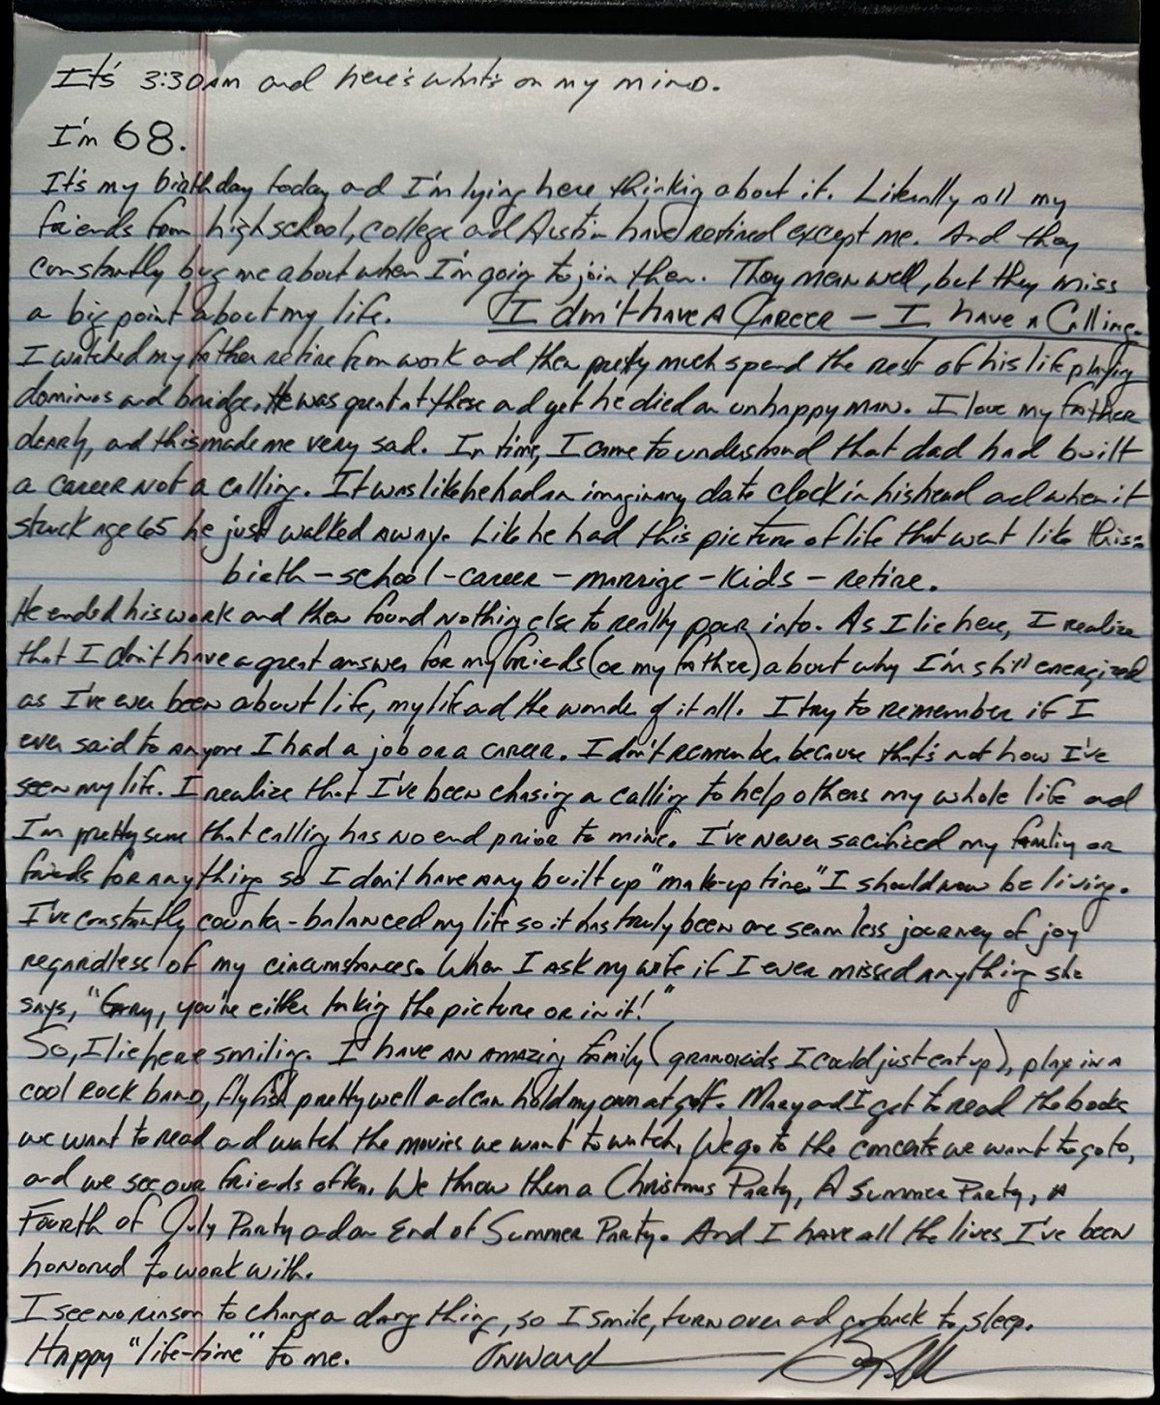 It's 3:30AM and here's what's on my mind.
I'm 68.
It's my birthday today and I'm lying here thinking about it. Literally all my
friends from high school, college and Austin have retired except me. And they
constantly bug me about when I'm going to join them. They mean well, but they miss
a big point about my life. I don't have A Career — I have a Calling.
I watched my father retire from work and then pretty much spend the rest of his life playing
dominos and bridge. He was great at these and yet he died an unhappy man. I love my father
dearly, and this made me very sad. In time, I came to understand that dad had built
a career not a calling. It was like he had an imaginary date clock in his head and when it
stuck age 65 he just walked away. Like he had this picture of life that went like this:
birth – school – career – marrige – kids – retire.
He ended his work and then found nothing else to really pour into. As I lie here, I realize
that I don't have a great answer for my friends (or my father) about why I'm still energized
as I've ever been about life, my life and the wonder of it all. I try to remember if I
ever said to anyone I had a job or a career. I don't remember because that's not how I've
seen my life. I realize that I've been chasing a calling to help others my whole life and
I'm pretty sure that calling has no end prior to mine. I've never sacrificed my family or
friends for anything so I don't have any built up "make-up time" I should now be living.
I've constantly counter-balanced my life so it has truly been one seamless journey of joy
regardless of my circumstances. When I ask my wife if I ever missed anything she
says, "Gary, you're either taking the picture or in it!"
So, I lie here smiling. I have an amazing family (grandkids I could just eat up), play in a
cool rock band, fly fish pretty well and can hold my own at golf. Mary and I get to read the books
we want to read and watch the movies we want to watch. We go to the concerts we want to go to,
and we see our friends often. We throw them a Christmas Party, A Summer Party, a
Fourth of July Party and an End of Summer Party. And I have all the lives I've been
honored to work with.
I see no reason to change a darg thing, so I smile, turn over and go back to sleep.
Happy "life-time" to me. Onward